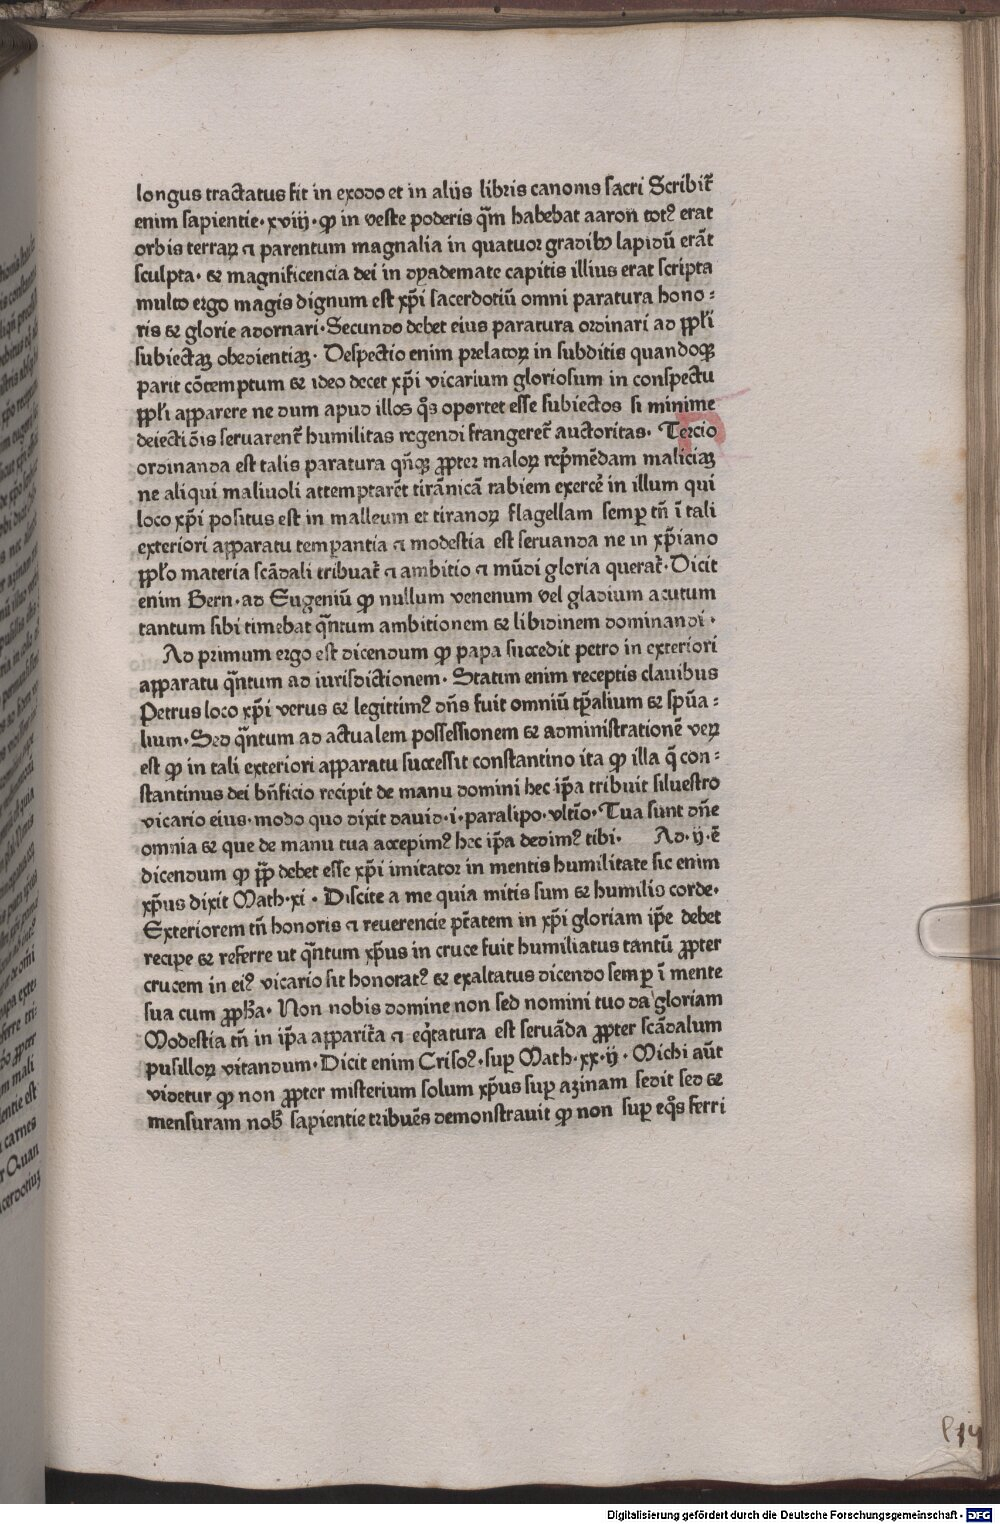 longus tractatus fit in exodo et in alijs libris canonis sacri Scribit᷑
enim sapientie· xviij· ꝙ in veste poderis qm̄ habebat aaron totꝰ erat
orbis terraꝝ ⁊ parentum magnalia in quatuor gradibꝫ lapidū erāt
sculpta· & magnificencia dei in dyademate capitis illius erat scripta
multo ergo magis dignum est xp̄i sacerdotiū omni paratura hono⸗
ris & glorie adornari· Secundo debet eius paratura ordinari ad pp̄li
subiectaꝫ obedientiaꝫ· Despectio enim prelatoꝝ in subditis quandoqꝫ
parit cōtemptum & ideo decet xp̄i vicarium gloriosum in conspectu
pp̄li apparere ne dum apud illos qͦs oportet esse subiectos si minime
deiecti ōis seruarent᷑ humilitas regendi frangeret᷑ auctoritas· Tercio
ordinanda est talis paratura qn̄qꝫ ꝓpter maloꝝ rep̄mēdam maliciaꝫ
ne aliqui maliuoli attemptarēt tirānicā rabiem exerce᷑ in illum qui
loco xp̄i positus est in malleum et tiranoꝝ flagellam semꝑ tn̄ ī tali
exteriori apparatu temperantia ⁊ modestia est seruanda ne in xp̄iano
pp̄lo materia scādali tribuat᷑ ⁊ ambitio ⁊ mūdi gloria querat᷑· Dicit
enim Bern· ad Eugeniū ꝙ nullum venenum vel gladium acutum
tantum sibi timebat qn̄tum ambitionem & libidinem dominandi·
Ad primum ergo est dicendum ꝙ papa succedit petro in exteriori
apparatu qn̄tum ad iurisdictionem· Statim enim receptis clauibus
Petrus loco xp̄i verus & legittimꝰ dn̄s fuit omniū tp̄alium & spūa⸗
lium· Sed qn̄tum ad actualem possessionem & administrationē veꝝ
est ꝙ in tali exteriori apparatu successit constantino ita ꝙ illa q̄ con⸗
stantinus dei bn̄ficio recipit de manu domini hec ip̄a tribuit siluestro
vicario eius· modo quo dixit dauid· i· paralipo· vltīo· Tua sunt dn̄e
omnia & que de manu tua accepimꝰ hec ip̄a dedimꝰ tibi· Ad· ij· ē
dicendum ꝙ pp̄ debet esse xp̄i imitator in mentis humilitate sic enim
xp̄us dixit Math· xi· Discite a me quia mitis sum & humilis corde·
Exteriorem tn̄ honoris ⁊ reuerencie ptātem in xp̄i gloriam ip̄e debet
recipe & referre ut qn̄tum xp̄us in cruce fuit humiliatus tantū ꝓpter
crucem in eiꝰ vicario sit honoratꝰ & exaltatus dicendo semꝑ ī mente
sua cum ꝓph̄a· Non nobis domine non sed nomini tuo da gloriam
Modestia tn̄ in ip̄a apparit᷑a ⁊ eq̇tatura est seruāda ꝓpter scādalum
pusilloꝝ vitandum· Dicit enim Crisoꝰ· suꝑ Math· xx· ij· Michi aūt
videtur ꝙ non ꝓpter misterium solum xp̄us suꝑ azinam sedit sed &
mensuram nob̄ sapientie tribuēs demonstrauit ꝙ non suꝑ eqͦs ferri
Digitalisierung gefördert durch die Deutsche Forschungsgemeinschaft - DFG